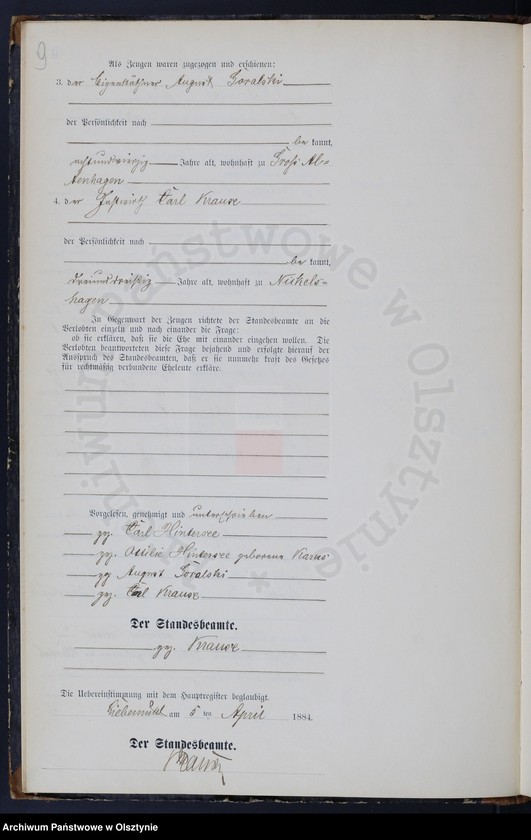 9
Als Zeugen waren zugezogen und erschienen:
3. der Eigenkäthner August Goralski
der Persönlichkeit nach
be kannt,
achtundvierzig Jahre alt, wohnhaft zu Groß Al-
tenhagen
4. der Gastwirth Carl Krause
der Persönlichkeit nach
be kannt,
dreiunddreißig Jahre alt, wohnhaft zu Nickels-
hagen
In Gegenwart der Zeugen richtete der Standesbeamte an die
Verlobten einzeln und nach einander die Frage:
ob sie erklären, daß sie die Ehe mit einander eingehen wollen. Die
Verlobten beantworteten diese Frage bejahend und erfolgte hierauf der
Ausspruch des Standesbeamten, daß er sie nunmehr kraft des Gesetzes
für rechtmäßig verbundene Eheleute erkläre.
Vorgelesen, genehmigt und unterschrieben
gz. Carl Hintersee
gz. Ottilie Hintersee geborene
gz August Goralski
gz. Carl Krause
Der Standesbeamte.
gz. Krause
Die Uebereinstimmung mit dem Hauptregister beglaubigt.
Liebemühl am 5 ten April 1884.
Der Standesbeamte.
Krause
Archiwum Państwowe w Olsztynie
Archiwum Państwowe w Olsztynie